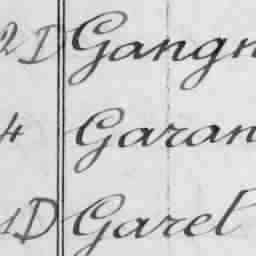 2D Gangn
4 Garan
1D Garel